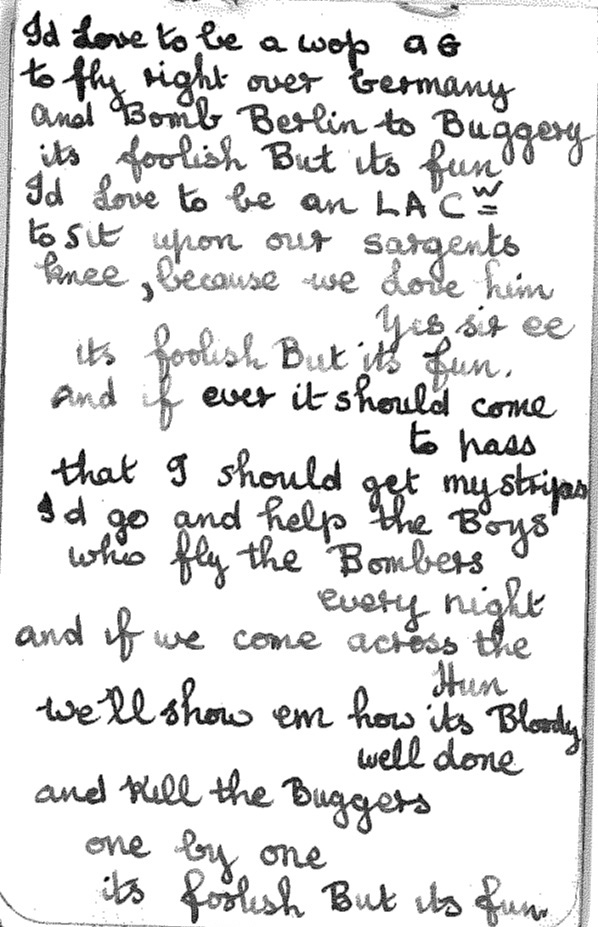 Id Love to be a wop a G
to fly right over Germany
and Bomb Berlin to Buggery
its foolish But its fun
Id Love to be an LAC w
to sit upon our sargents
knee, because we Love him
Yes sir ee
its foolish But its fun.
and if ever it should come
to pass
that I should get my stripes
Id go and help the Boys
who fly the Bombers
every night
and if we come across the
Hun
we'll show em how its Bloody
well done
and Kill the Buggers
one by one
its foolish But its fun.